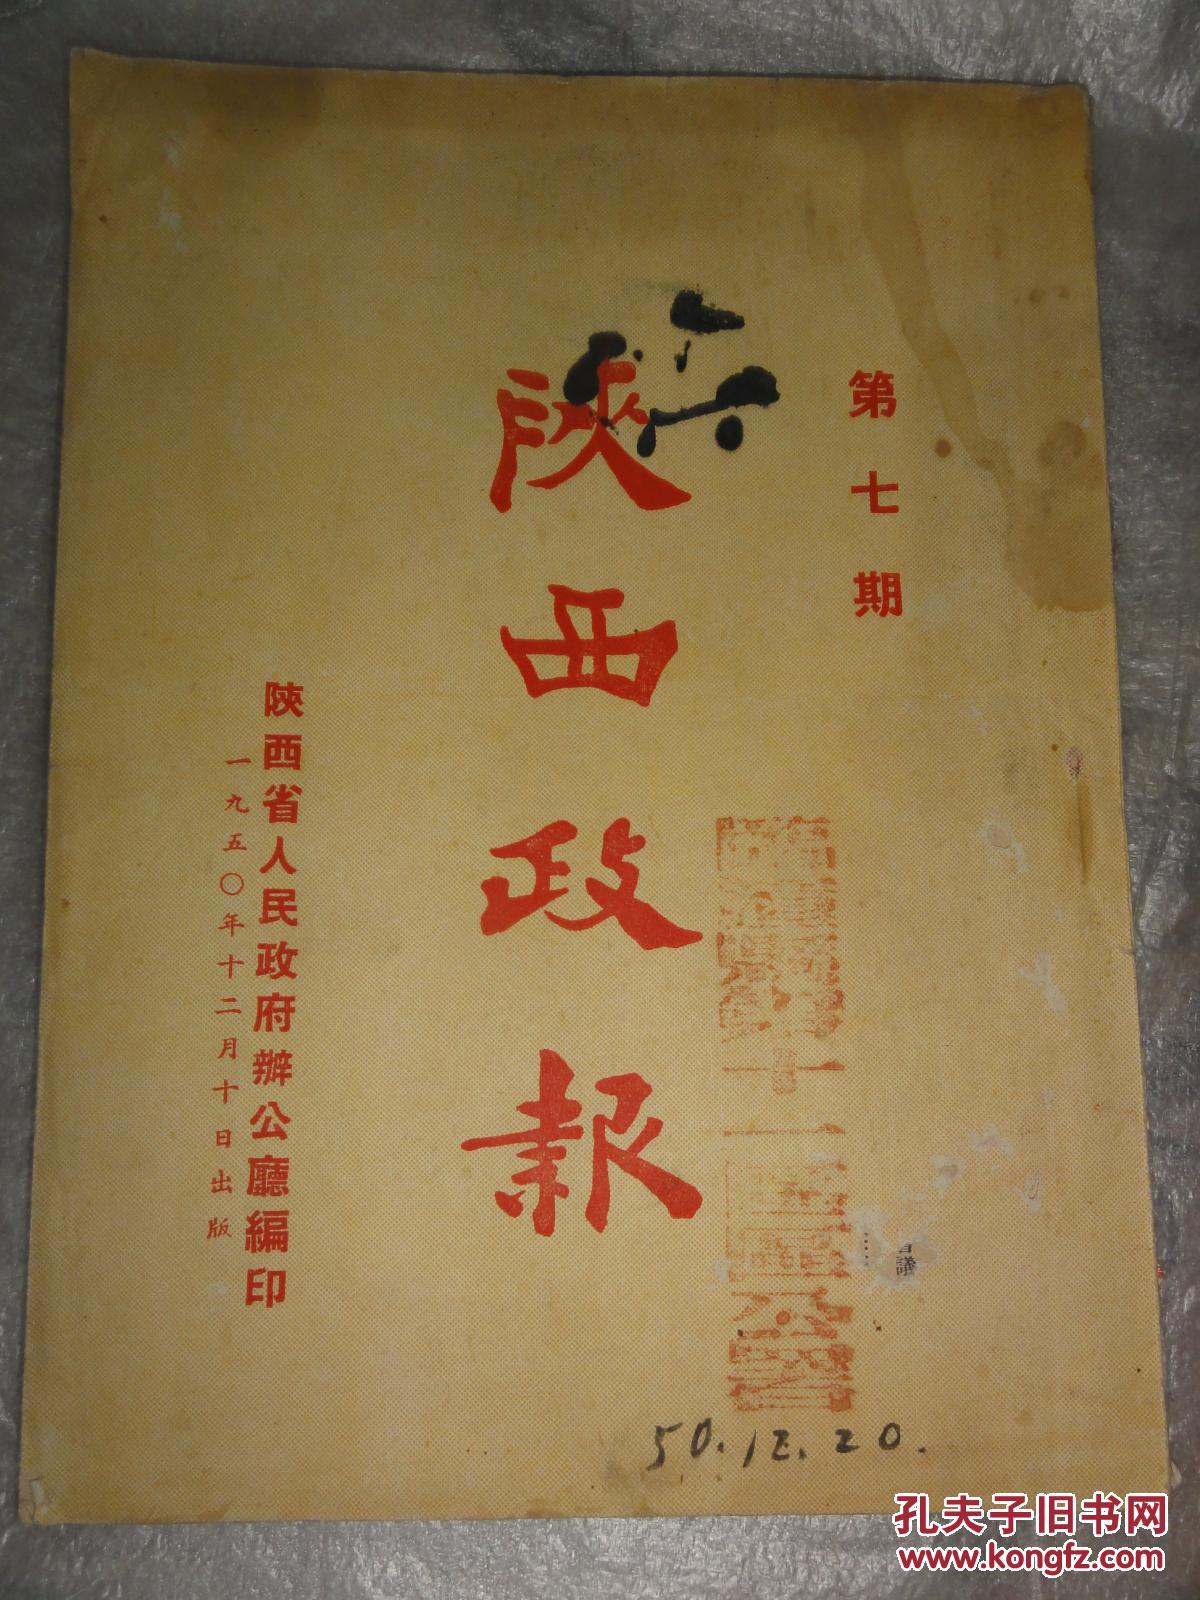 第七期
陝西政報
陝西省人民政府辦公廳編印
一九五〇年十二月十日出版
十一區公
議
50.12.20.
孔夫子旧书网
www.kongfz.com